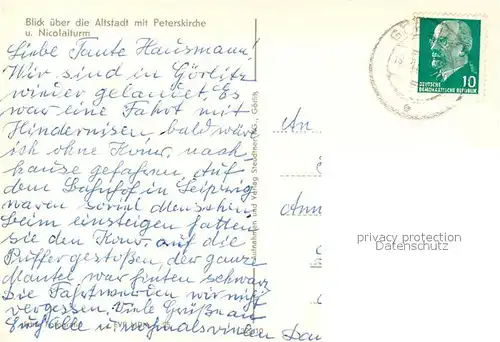 Blick über die Altstadt mit Peterskirche
u. Nicolaiturm
Liebe Tante Hausmann!
Wir sind in Görlitz
wieder gelandet. Es
war eine Fahrt mit
Hindernisen, bald wäre
ich ohne Konr. nach-
hause gefahren. Auf
dem Bahnhof in Leipzig
waren soviel Menschen
beim einsteigen hatten
sie den Konr. auf die
Puffer gestoßen, der ganze
Mantel war hinten schwarz
die Fahrt werden wir nicht
vergessen. Viele Grüße an
Euch alle u. nochmals vielen Dan
Aufnahmen und Verlag Görlitz
An
Ann
10
DEUTSCHE
DEMOKRATISCHE REPUBLIK
privacy protection
Datenschutz